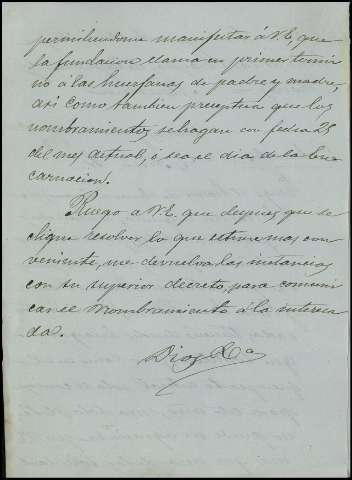 permitiendome manifestar á V.E, que
la fundacion llama en primer termi
no á las huerfanas de padre y madre,
asi como tambien preceptua que los
nombramientos se hagan con fecha 25
del mes actual, ó sea el dia de la En
carnacion.
Ruego á V.E. que despues que se
digne resolver lo que estimemos con
veniente, me devuelva las instancias
con su superior decreto, para comuni
car el nombramiento á la interesa
da.
Dios &a